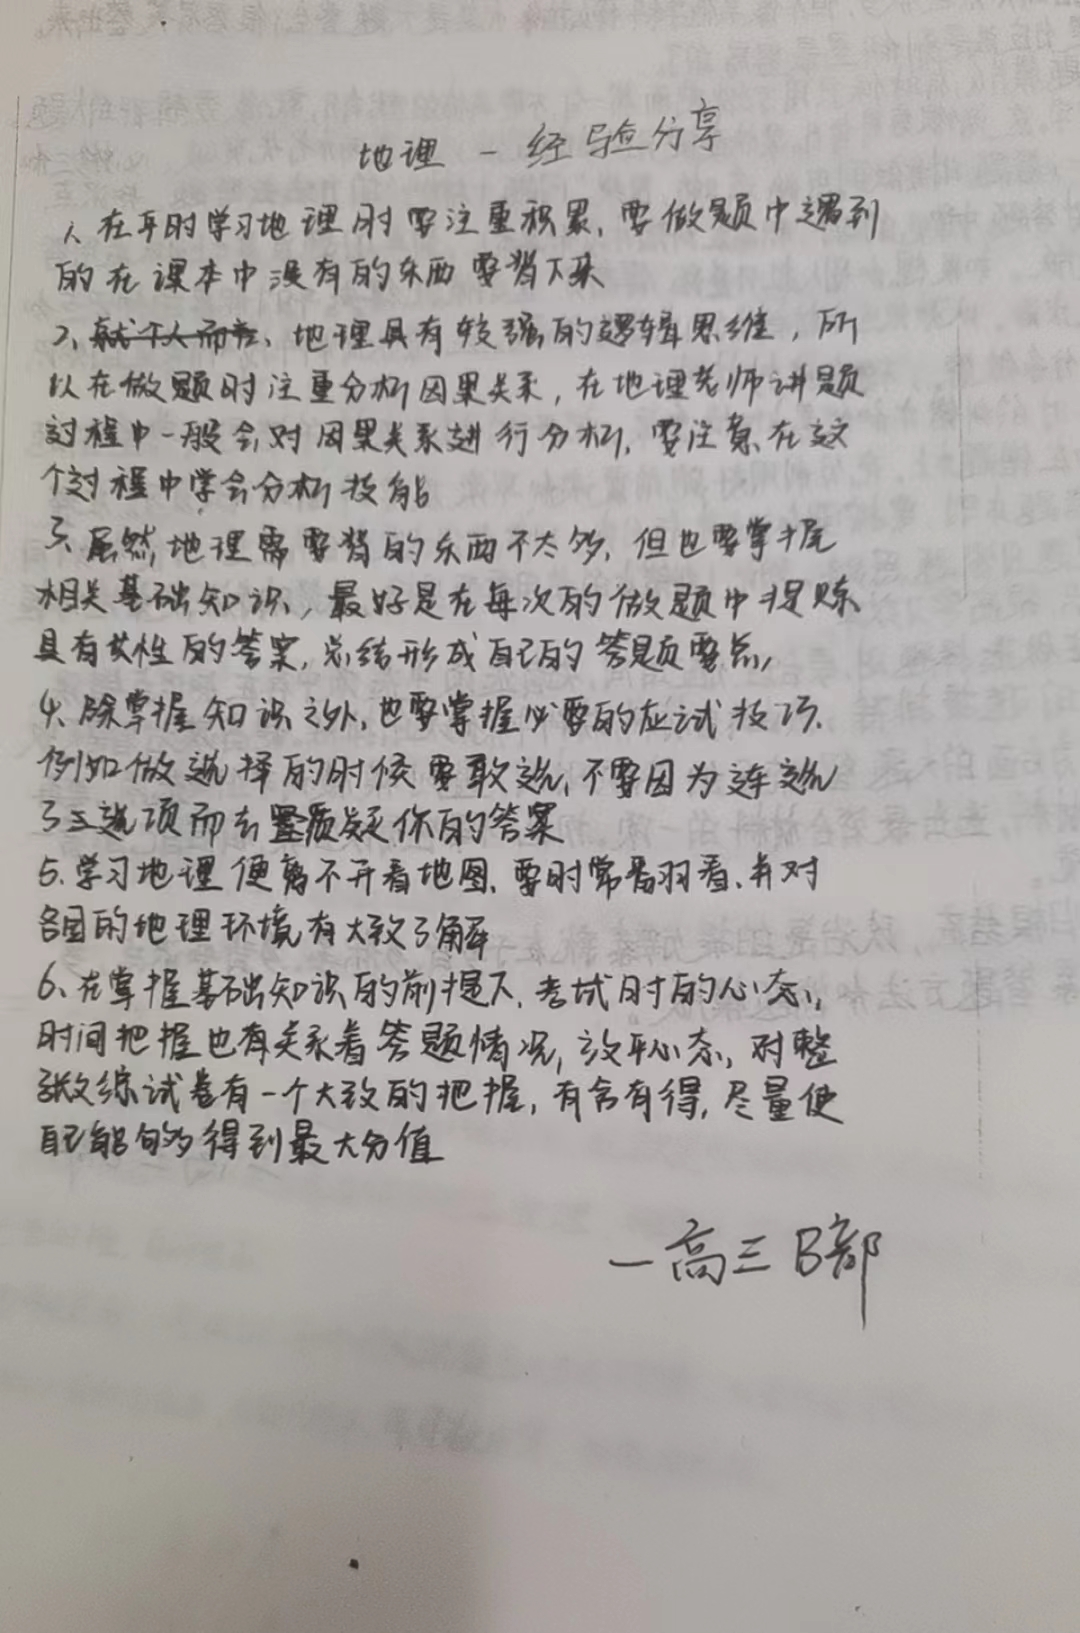 地理 - 经验分享
1、在平时学习地理时要注重积累,要做题中遇到
的在课本中没有的东西要背下来
2、就个人而言、地理具有较强的逻辑思维,所
以在做题时注重分析因果关系,在地理老师讲题
过程中一般会对因果关系进行分析,要注意在这
个过程中学会分析技能
3、虽然,地理需要背的东西不太多,但也要掌握
相关基础知识,最好是在每次的做题中提炼
具有共性的答案,总结形成自己的答题要点,
4、除掌握知识之外,也要掌握必要的应试技巧.
例如做选择的时候要敢选,不要因为连选
了三选项而去质疑你的答案
5.学习地理便离不开看地图,要时常翻看,并对
各国的地理环境有大致了解
6、在掌握基础知识的前提下,考试时的心态,
时间把握也有关系着答题情况,放平心态,对整
张文综试卷有一个大致的把握,有舍有得,尽量使
自己能够得到最大分值
一高三B部